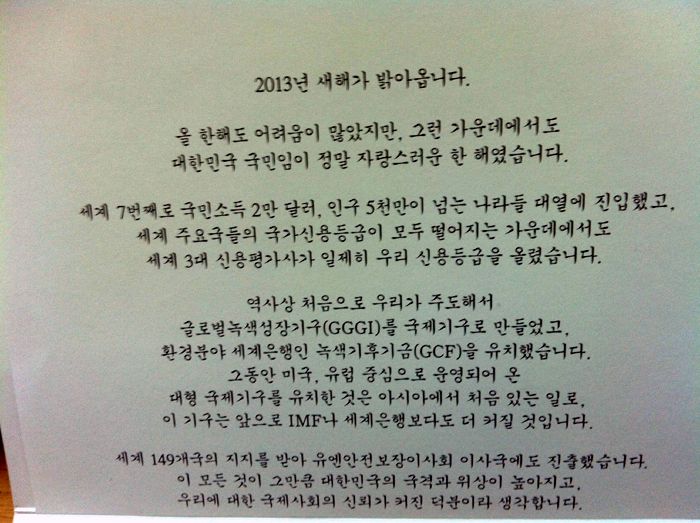 2013년 새해가 밝아옵니다.
올 한해도 어려움이 많았지만, 그런 가운데에서도
대한민국 국민임이 정말 자랑스러운 한 해였습니다.
세계 7번째로 국민소득 2만 달러, 인구 5천만이 넘는 나라들 대열에 진입했고,
세계 주요국들의 국가신용등급이 모두 떨어지는 가운데에서도
세계 3대 신용평가사가 일제히 우리 신용등급을 올렸습니다.
역사상 처음으로 우리가 주도해서
글로벌녹색성장기구(GGGI)를 국제기구로 만들었고,
환경분야 세계은행인 녹색기후기금(GCF)을 유치했습니다.
그동안 미국, 유럽 중심으로 운영되어 온
대형 국제기구를 유치한 것은 아시아에서 처음 있는 일로,
이 기구는 앞으로 IMF나 세계은행보다도 더 커질 것입니다.
세계 149개국의 지지를 받아 유엔안전보장이사회 이사국에도 진출했습니다.
이 모든 것이 그만큼 대한민국의 국격과 위상이 높아지고,
우리에 대한 국제사회의 신뢰가 커진 덕분이라 생각합니다.